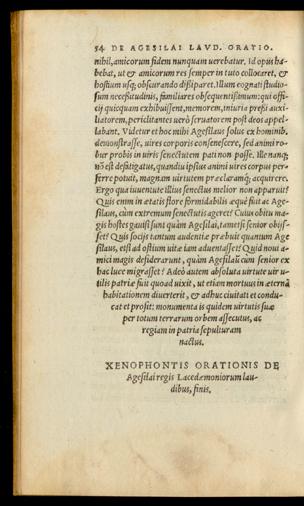 54 DE AGESILAI LAVD. ORATIO.
nihil, amicorum fidem nunquam uerebatur. Id opus ha-
bebat, ut & amicorum res semper in tuto collocaret, &
hostium usq; obscurando dissiparet. Illum cognati studio-
sum necessitudinis, familiares obsequentissimum: qui offi-
cij quicquam exhibuissent, memorem, iniuria pressi auxi-
liatorem, periclitantes uerò seruatorem post deos appel-
labant. Videtur et hoc mihi Agesilaus solus ex hominib.
demonstrasse, uires corporis consenescere, sed animi ro-
bur probis in uiris senectutem pati non posse. Ille nanq;
nõ est defatigatus, quandiu ipsius animi uires corpus per-
ferre potuit, magnam uirtutem præclaramq; acquirere.
Ergo qua iuuentute illius senectus melior non apparuit?
Quis enim in ætatis flore formidabilis æquè fuit ac Age-
silaus, cùm extremum senectutis ageret? Cuius obitu ma-
gis hostes gauisi sunt quàm Agesilai, tametsi senior obijs-
set? Quis socijs tantum audentiæ præbuit quantum Age
silaus, etsi ad ostium uitæ iam aduentasset? Quid noui a-
mici magis desiderarunt, quàm Agesilaũ cùm senior ex
hac luce migrasset? Adeò autem absoluta uirtute uir u-
tilis patriæ fuit quoad uixit, ut etiam mortuus in æternã
habitationem diuerterit, & adhuc ciuitati et condu-
cat et profit: monumenta is quidem uirtutis suæ
per totum terrarum orbem assecutus, ac
regiam in patria sepulturam
nactus.
XENOPHONTIS ORATIONIS DE
Agesilai regis Lacedæmoniorum lau-
dibus, finis.